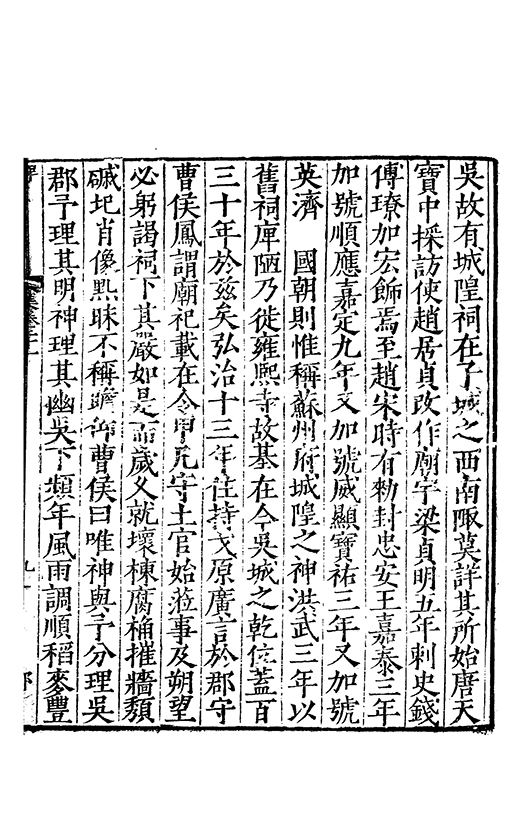 吳故有城隍祠在子城之西南陬莫詳其所始唐天
寶中採訪使趙居貞改作廟宇梁貞明五年刺史錢
傳璙加宏飾焉至趙宋時有勑封忠安王嘉泰三年
加號順應嘉定九年又加號威顯寶祐三年又加號
英濟　國朝則惟稱蘇州府城隍之神洪武三年以
舊祠庳陋乃徙雍熙寺故基在今吳城之乾位蓋百
三十年於茲矣弘治十三年住持戈原廣言於郡守
曹侯鳳謂廟祀載在令甲凡守土官始蒞事及朔望
必躬謁祠下其嚴如是而歲久就壞棟腐桷摧牆頹
墄圮肖像㸃昧不稱瞻仰曹侯曰唯神與予分理吳
郡予理其明神理其幽吳下頻年風雨調順稻麥豐